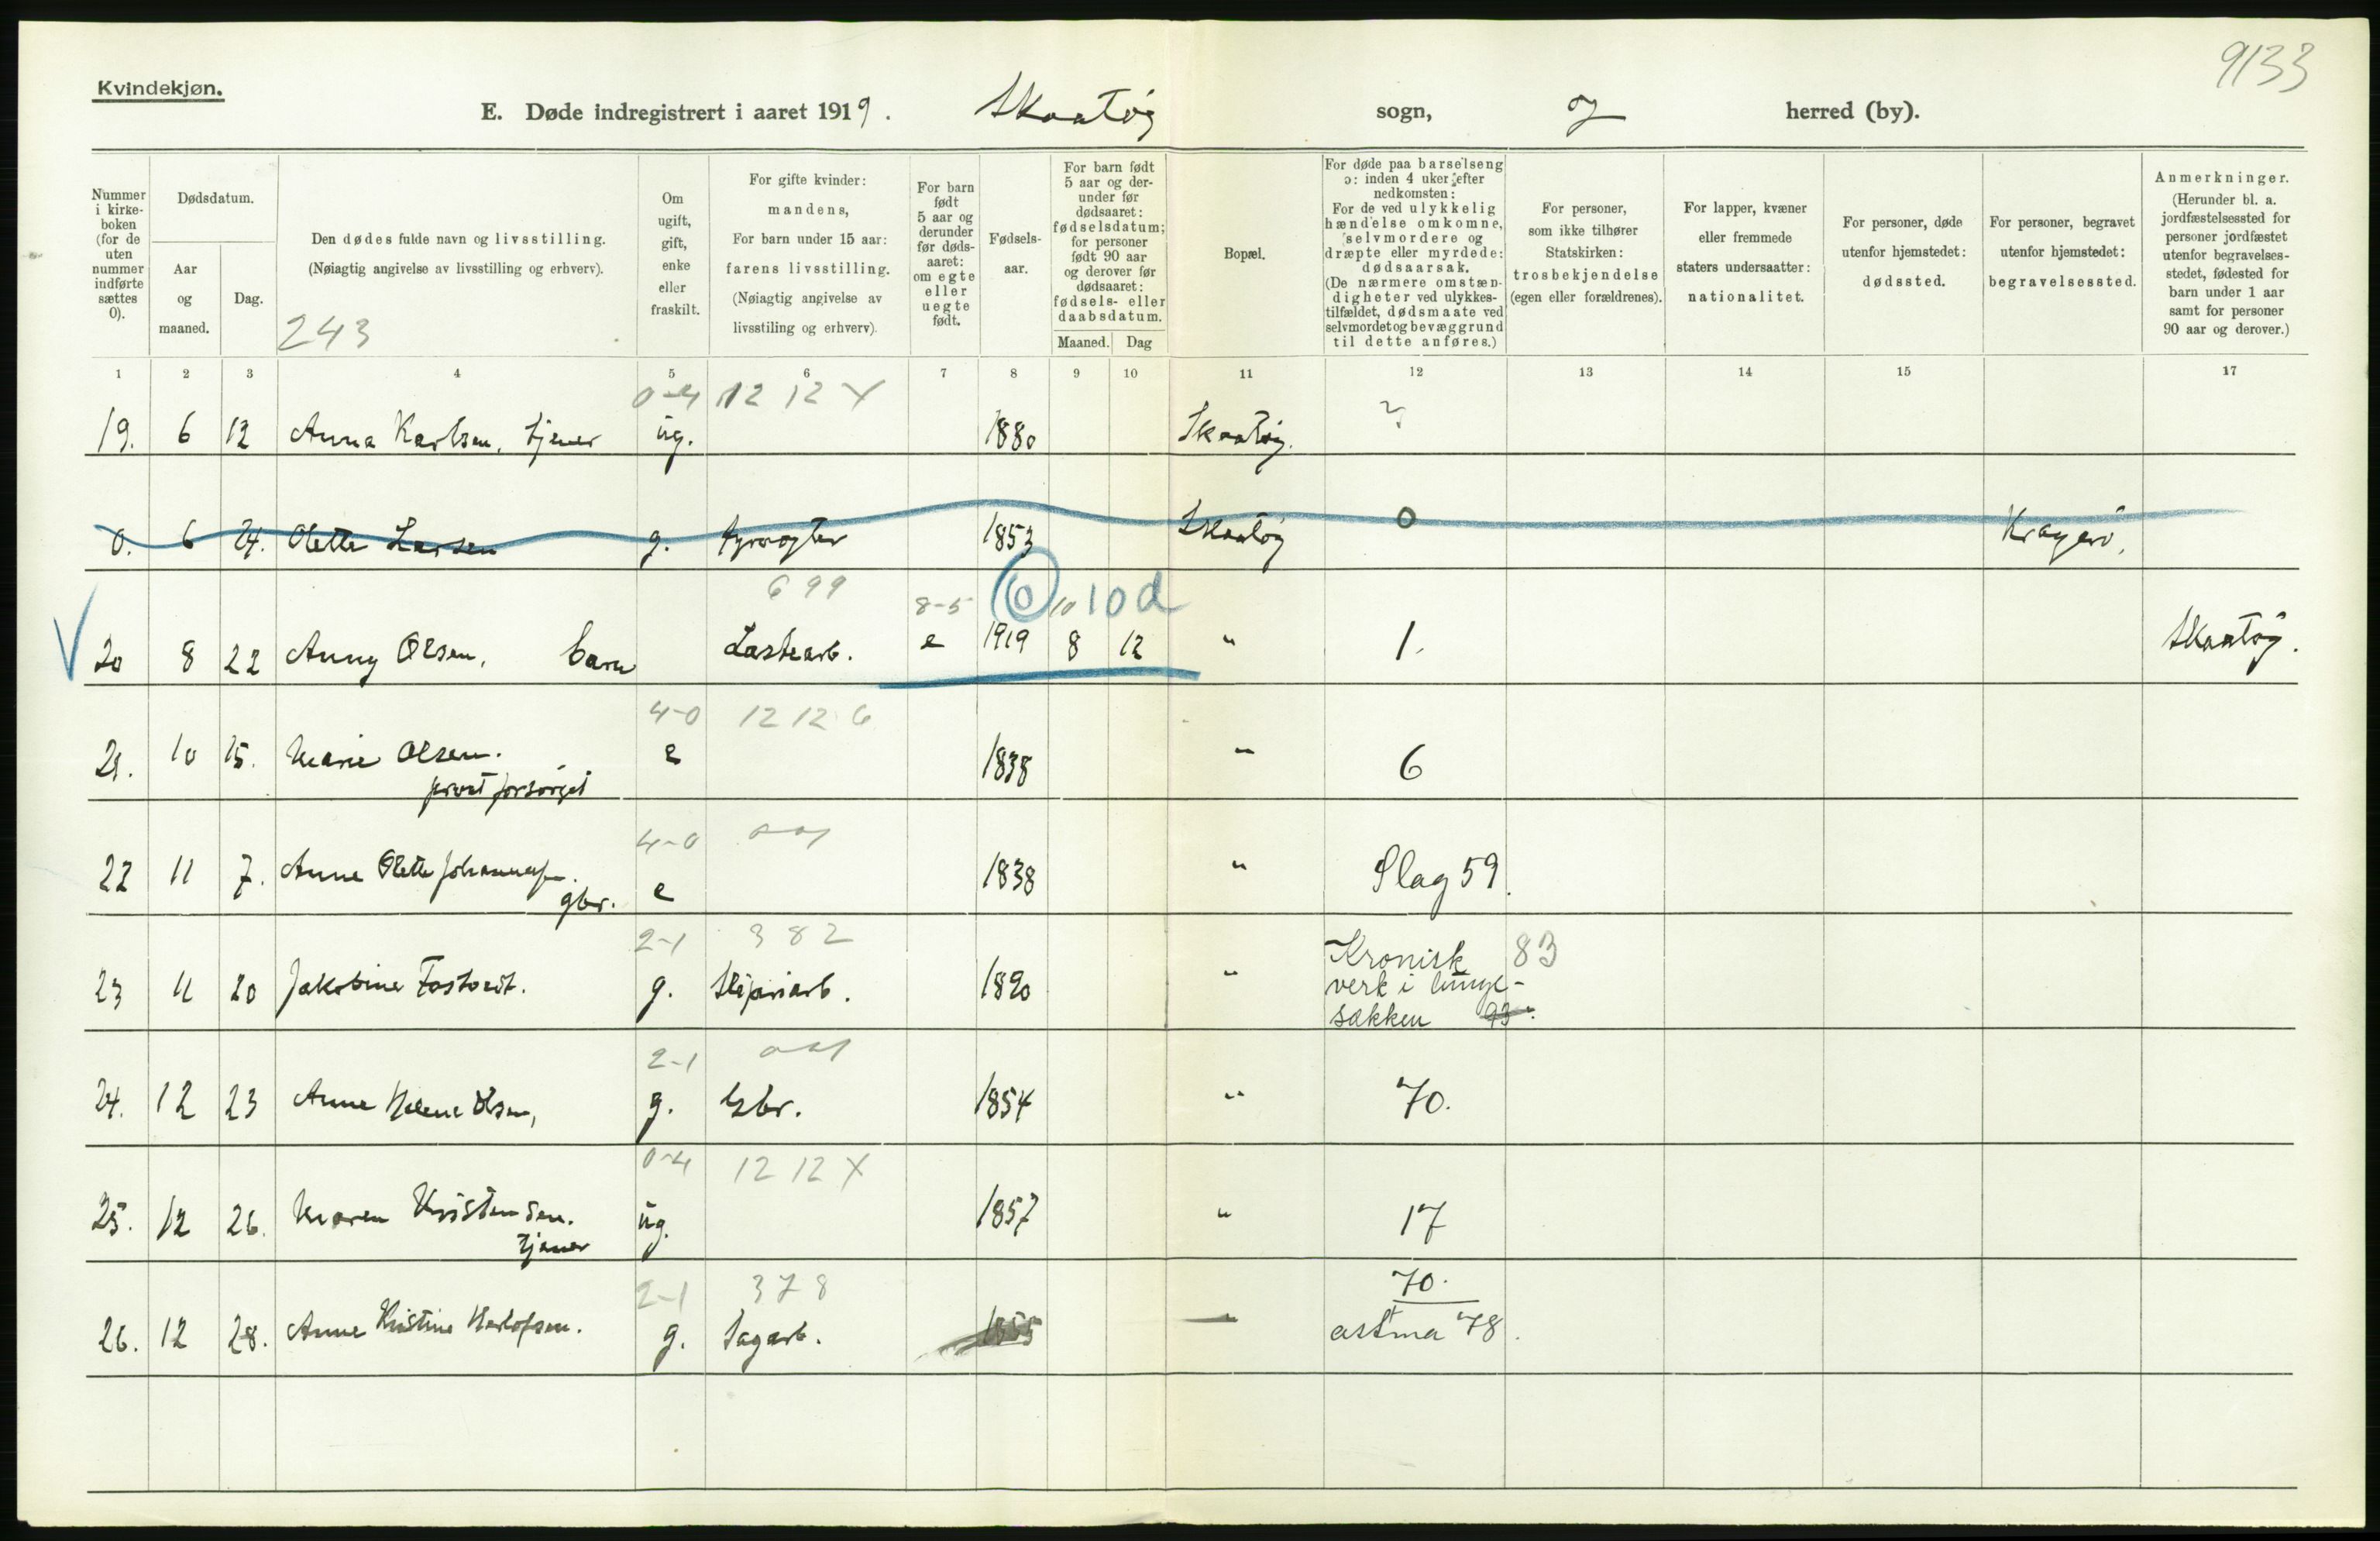 9133
Kvindekjøn.
E. Døde indregistrert i aaret 1919. Skaatøy sogn, herred (by).
Nummer i kirke-boken (for de uten nummer indførte sættes 0).
Dødsdatum.
Aar og maaned.
Dag.
Den dødes fulde navn og livsstilling.
(Nøiagtig angivelse av livsstilling og erhverv).
243
Om ugift, gift, enke eller fraskilt.
For gifte kvinder: mandens,
For barn under 15 aar: farens livsstilling.
(Nøiagtig angivelse av livsstiling og erhverv).
For barn født 5 aar og derunder før døds-aaret: om egte eller uegte født.
Fødsels-aar.
For barn født 5 aar og der-under før dødsaaret: fødselsdatum; for personer født 90 aar og derover før dødsaaret: fødsels- eller daabsdatum.
Maaned. Dag
Bopæl.
For døde paa barselseng ɔ: inden 4 uker efter nedkomsten:
For de ved ulykkelig hændelse omkomne, selvmordere og dræpte eller myrdede: dødsaarsak.
(De nærmere omstæn-digheter ved ulykkes-tilfældet, dødsmaate ved selvmord et og bevæggrund til dette anføres.)
For personer, som ikke tilhører Statskirken: trosbekjendelse (egen eller forældrenes).
For lapper, kvæner eller fremmede staters undersaatter: nationalitet.
For personer, døde utenfor hjemstedet: dødssted.
For personer, begravet utenfor hjemstedet: begravelsessted.
Anmerkninger.
(Herunder bl. a. jordfæstelsessted for personer jordfæstet utenfor begravelses-stedet, fødested for barn under 1 aar samt for personer 90 aar og derover.)
1 2 3 4 5 6 7 8 9 10 11 12 13 14 15 17
0-4 12 12 X
19. 6 12 Anna Karlsen, tjener ug. 1880 Skaatøy. ?
0. 6 24. Olette Larsen g. fyrvogter 1853 Skaatøy 0 Kragerø.
699 8-5 10 10 10 d
20 8 22 Anny Olsen, barn Lastearb. e 1919 8 12 " 1. Skaatøy.
4-0 12 12 6
21. 10 15. Marie Olsen. e 1838 " 6
privat forsørget
4-0
22 11 7. Anne Olette Johannesen. e 1838 " Slag 59.
gbr.
2-1 382 Kronisk 83
23 11 20 Jakobine Tostendt. g. Sliperiarb. 1890 " verk i lunge-
sækken 93.
2-1
24. 12 23 Anne Helene Olsen, g. Gbr. 1854 " 70.
0-4 12 12 X
25. 12 26. Maren Kristensen. ug. 1857 " 17
tjener
2-1 378 70.
26. 12 28. Anne Kristine Herlofsen. g. Sagarb. 1855 " astma 78.